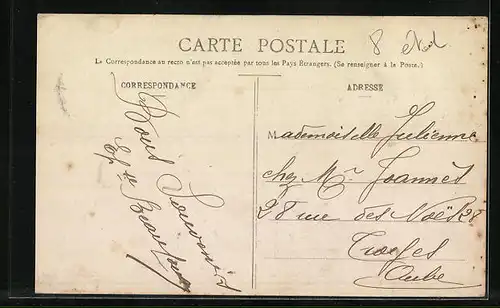 CARTE POSTALE
La Correspondance au recto n'est pas acceptée par tous les Pays Étrangers. (Se renseigner à la Poste.)
CORRESPONDANCE
Bons Souvenirs
ADRESSE
Mademoiselle Julienne
chez Mr. Joannès
28 rue des Noës 28
Troyes
Aube